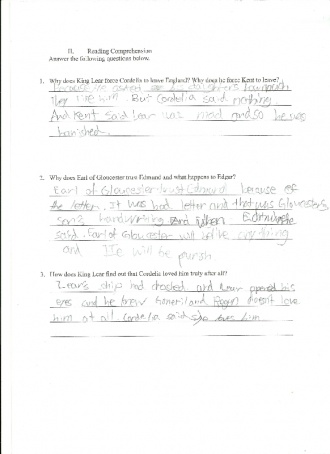 II. Reading Comprehension
Answer the following questions below.
1. Why does King Lear force Cordelia to leave England? Why does he force Kent to leave?
Because he asked daughters how much
They love him. But Cordelia said nothing
And Kent said Lear was mad and so he was
banished.
2. Why does Earl of Gloucester trust Edmund and what happens to Edgar?
Earl of Gloucester trust Edmund because of
the letter. It was bad letter and that was Gloucester's
son's handwriting and when
said. Earl of Gloucester will
and He will be punish
3. How does King Lear find out that Cordelia loved him truly after all?
Lear's ship had and Lear opened his
eyes and he knew Goneril and Regan doesn't love
him at all. Cordelia said she loves him